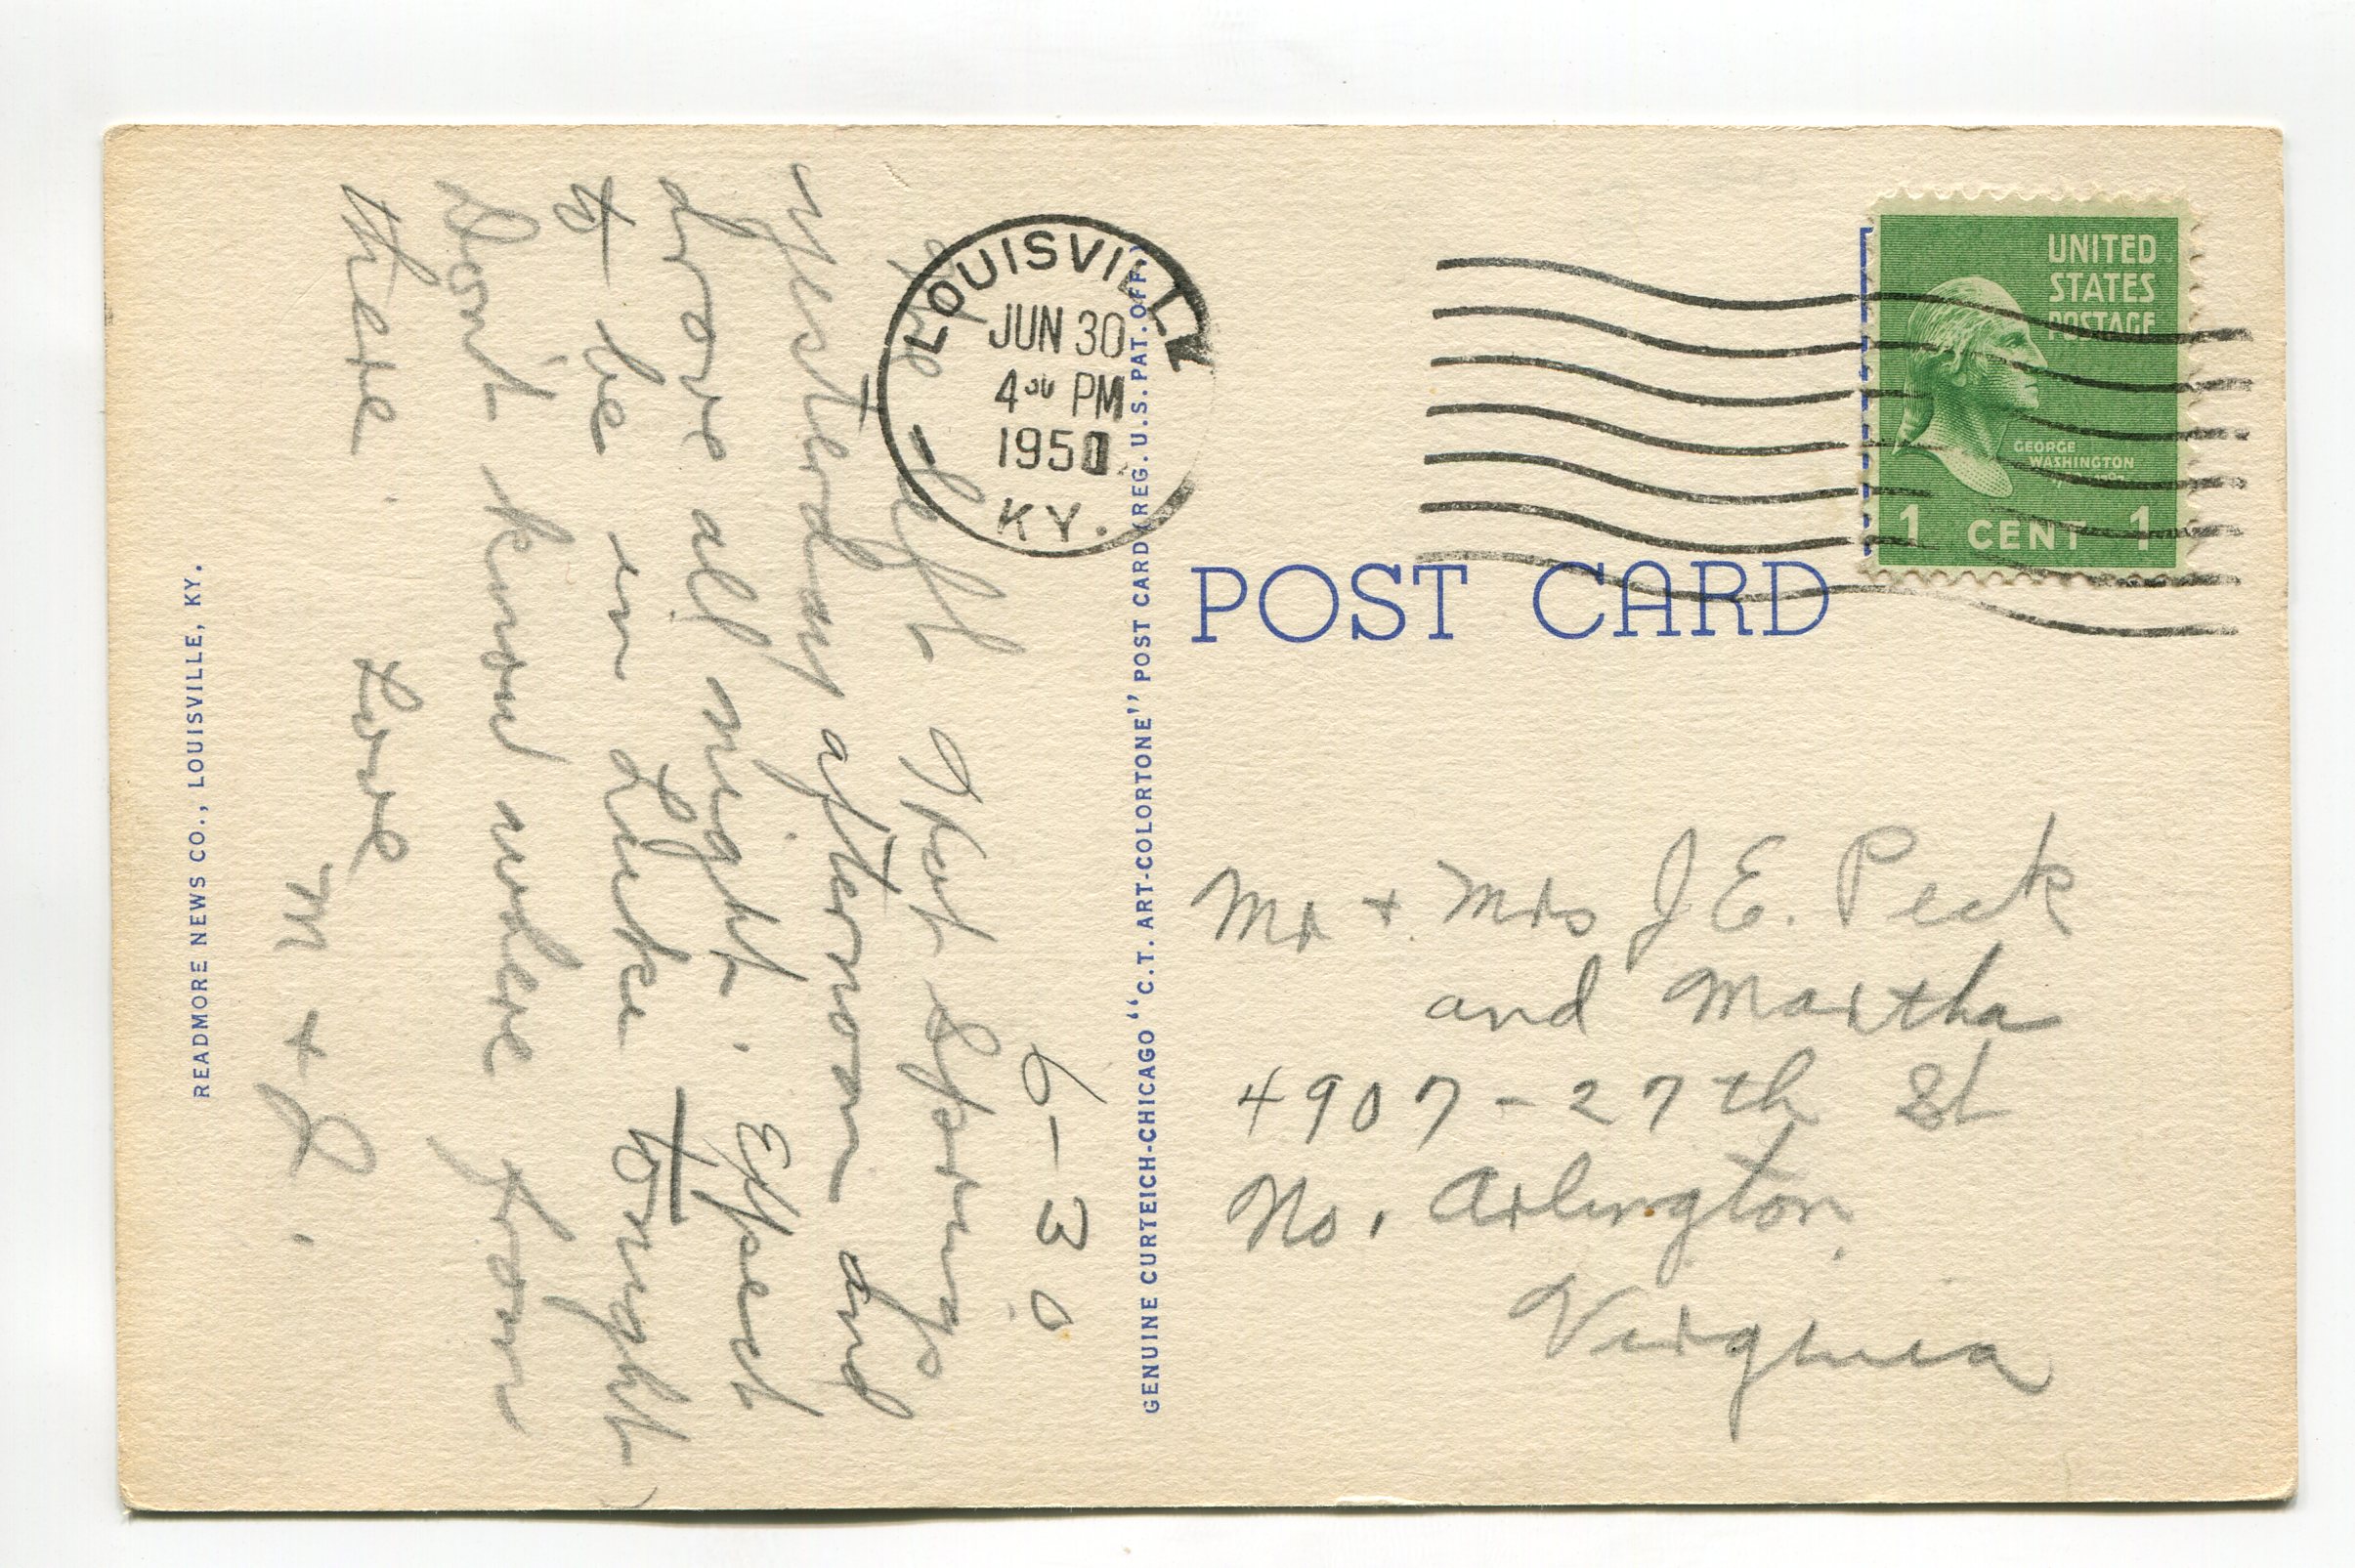 LOUISVILLE
JUN 30
4 30 PM
1950
KY.
UNITED
STATES
POSTAGE
GEORGE
WASHINGTON
1 CENT 1
POST CARD
6-30
We left Hot Springs
yesterday afternoon and
drove all night. Expect
to be in Luke tonight
Don't know where from
there.
Love
M + J.
GENUINE CURTEICH-CHICAGO "C.T. ART-COLORTONE" POST CARD (REG. U.S. PAT. OFF.)
Mr + Mrs J E. Peck
and Martha
4907-27th St
No. Arlington
Virginia
READMORE NEWS CO., LOUISVILLE, KY.